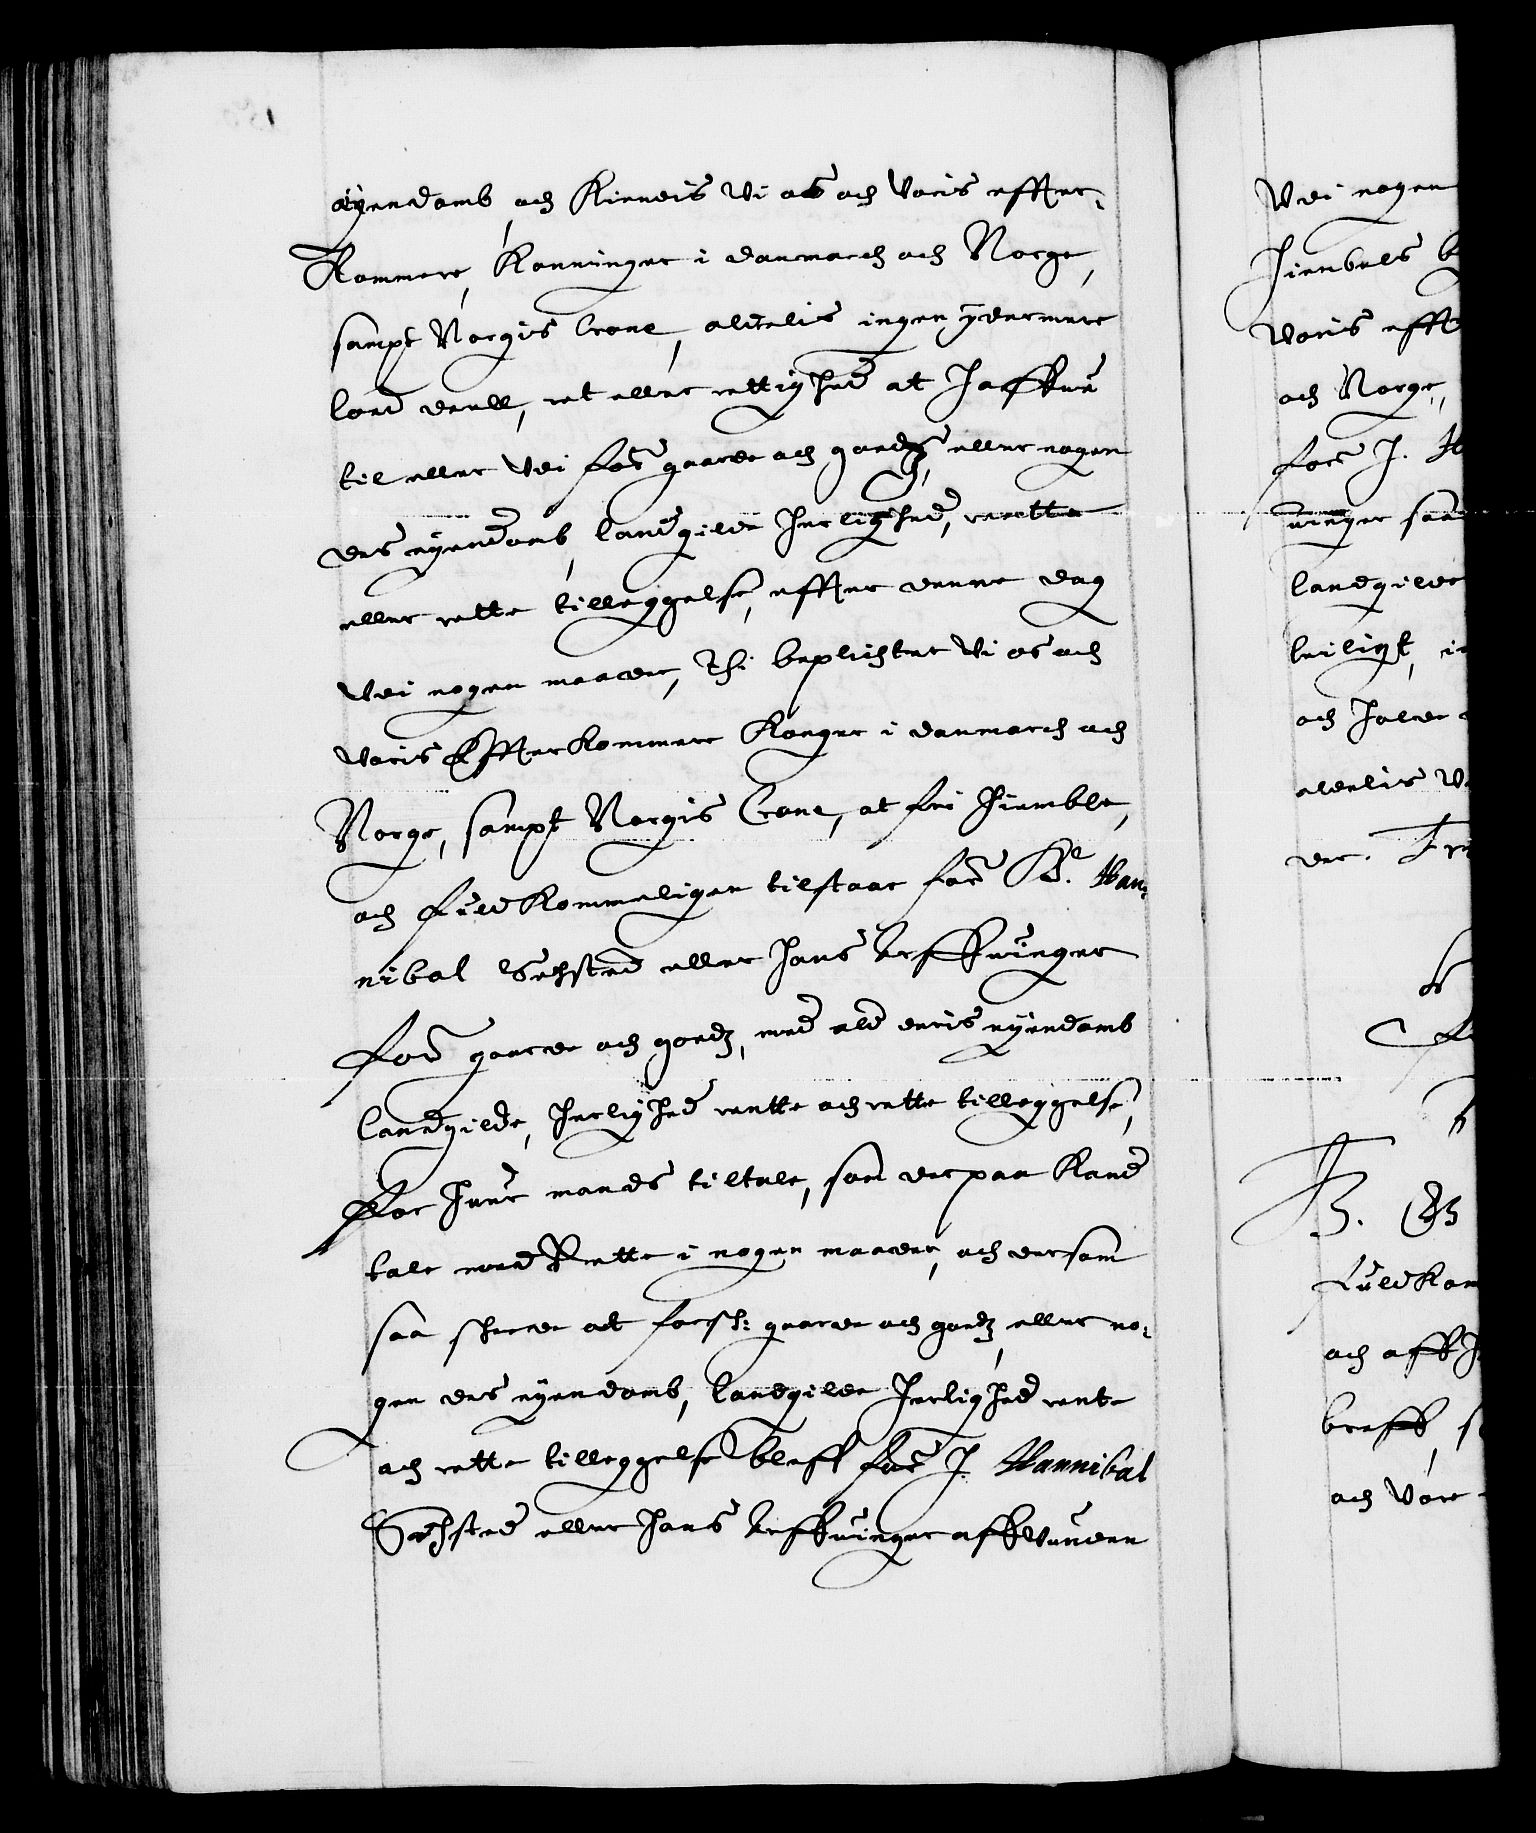 eyendomb, och Kiendis Vi os och Voris effter¬
Kommere, Konninger i danmarch och Norge,
sampt Norgis Crone, aldelis ingen ydermere
lod deell, ret eller rettighed at haffue
til eller Vdi for: gaarde och godz, eller nogen
des eyendomb, landgilde herlighed, rentte
eller rette tilleggelse, effter denne dag
Vdi nogen maader, Thi beplichter Vi os och
Voris Effterkommere Konger i danmarch och
Norge, sampt Norgis Crone, at fri hiemble,
och fuldkommeligen tilstaae for: H: Han¬
nibal Sehsted eller hans Arffuinger
for: gaarde och godz, med ald deris eyendomb
landgilde, herlighed rentte och rette tilleggelse,
For huer mands tiltale, som derpaa Kand
tale med Rette i nogen maader, och dersom
saa scheede at forsch: gaarde och godz, eller no¬
gen des eyendomb, landgilde herlighed rente
och rette tilleggelse bleff for: H. Hannibal
Sehsted eller hans Arffuinger affvunden
Vdi nogen
hiembels
Voris efft
och Norge,
for: H. Ha
uinger saa
landgilde
beiligt,
och holde
aldelis
der. Fr
fuldkom
och aff
breff,
och Vore